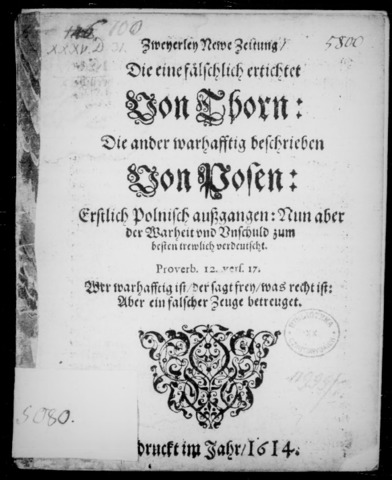 100
XXXV.D 31.
5800
Zweyerley Newe Zeitung/
Die eine fälschlich ertichtet
Von Thorn:
Die ander warhafftig beschrieben
Von Posen:
Erstlich Polnisch außgangen: Nun aber
der Warheit vnd Vnschuld zum
besten trewlich verdeutscht.
Proverb. 12. vers. 17.
Wer warhafftig ist/der sagt frey/was recht ist:
Aber ein falscher Zeuge betreuget.
5080.
druckt im Jahr/1614.